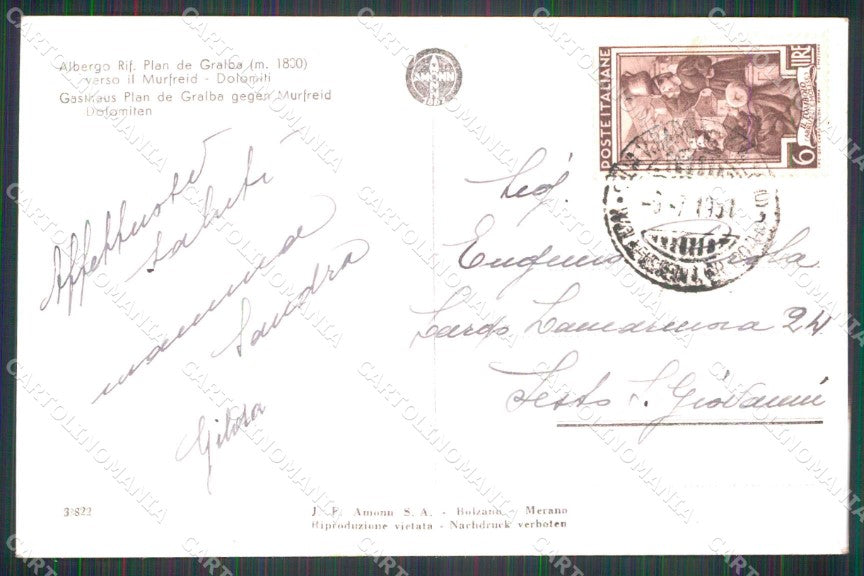 Albergo Rif. Plan de Gralba (m. 1800)
verso il Murfreid - Dolomiti
Gasthaus Plan de Gralba gegen Murfreid
Dolomiten
AMONN
POSTE ITALIANE
LIRE
6
1951
Affettuosi
saluti
mamma
Sandra
Gilda
Sig.
Eugenio
Largo Lamarmora 24
Sesto S. Giovanni
3822
J. F. Amonn S. A. - Bolzano - Merano
Riproduzione vietata - Nachdruck verboten
CARTOLINOMANIA